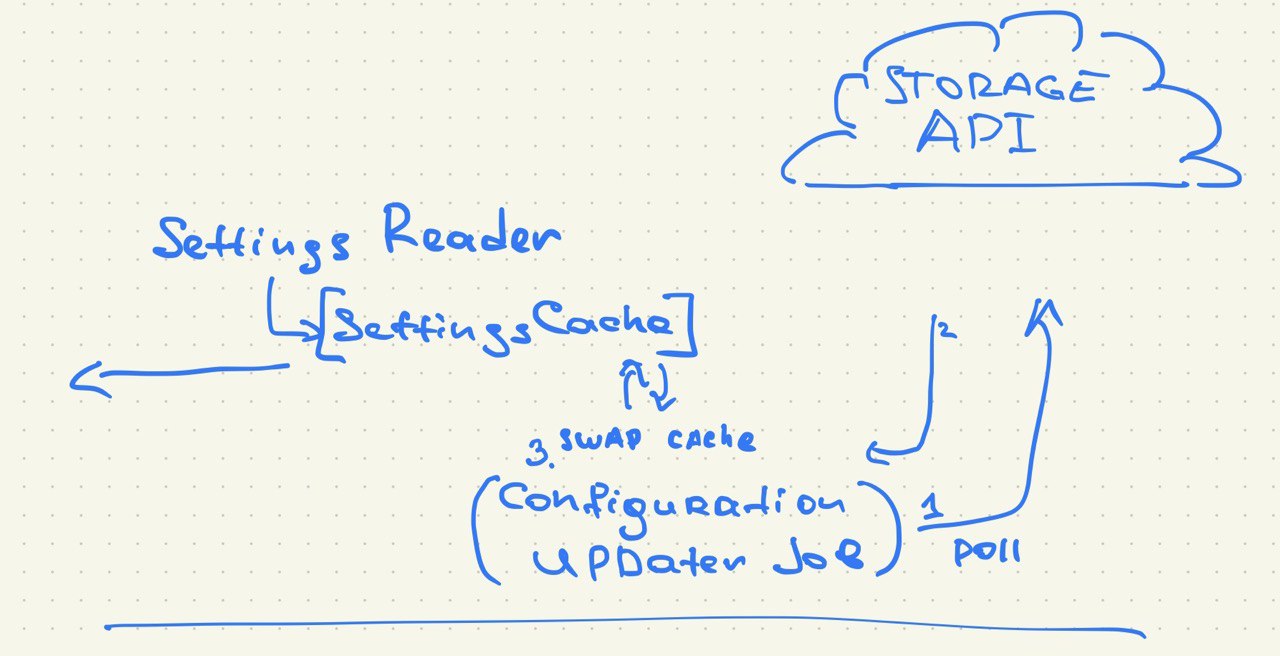 STORAGE
API
Settings Reader
[SettingsCache]
2
3. SWAP cache
(Configuration
UPDater Job)
1
Poll